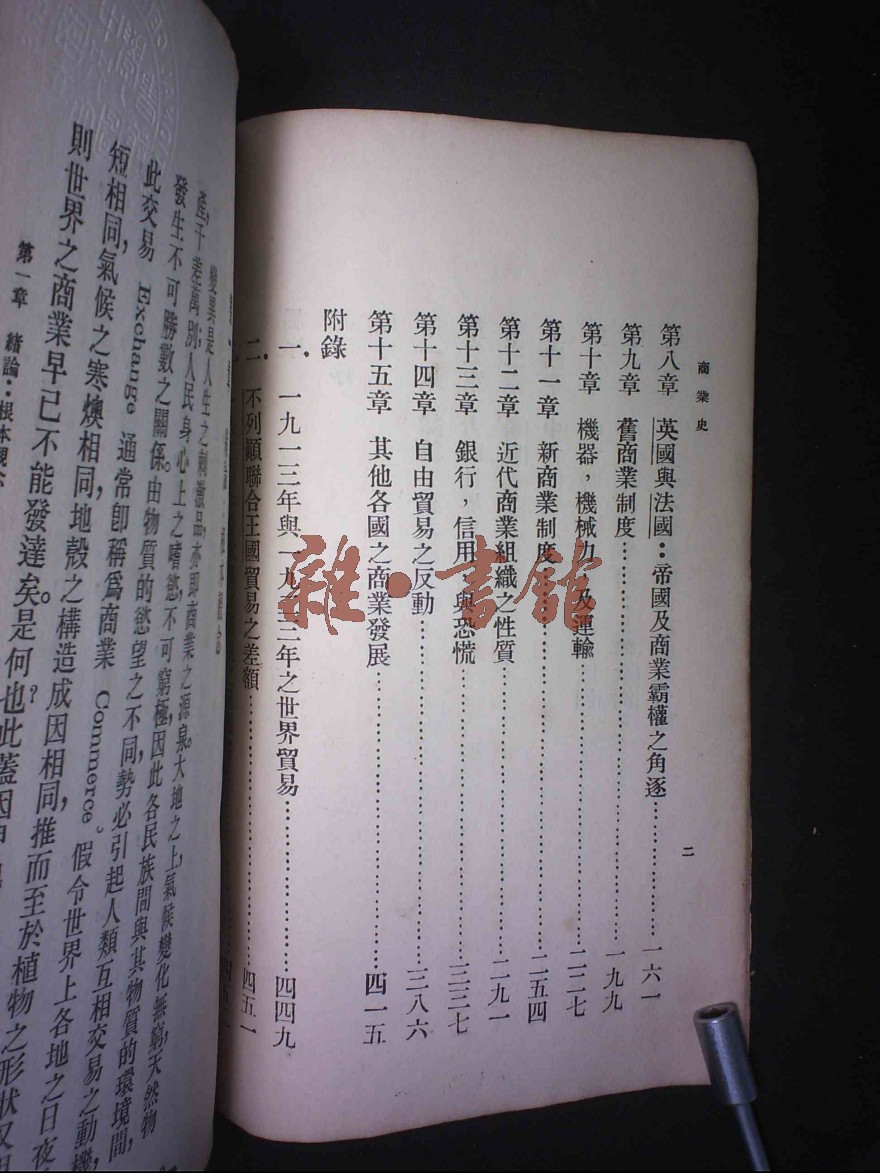 商業史
二
第八章　英國與法國：帝國及商業霸權之角逐……一六一
第九章　舊商業制度……一九九
第十章　機器，機械力，及運輸……二二七
第十一章　新商業制度……二五四
第十二章　近代商業組織之性質……二九一
第十三章　銀行，信用，與恐慌……三三七
第十四章　自由貿易之反動……三八六
第十五章　其他各國之商業發展……四一五
附錄
一．一九一三年與一九三三年之世界貿易……四四九
二．不列顛聯合王國貿易之差額……四五一
雜·書館
變異是人生之刺激品，亦即商業之源泉。大地之上，氣候變化無窮，天然物
產，千差萬別；人民身心上之嗜慾，不可窮極，因此各民族間與其物質的環境間，
發生不可勝數之關係。由物質的慾望之不同，勢必引起人類互相交易之動機，
此交易 Exchange 通常卽稱爲商業 Commerce。假令世界上各地之日夜
短相同，氣候之寒燠相同，地殼之構造成因相同，推而至於植物之形狀又
則世界之商業早已不能發達矣。是何也？此蓋因
第一章　緒論：根本觀念